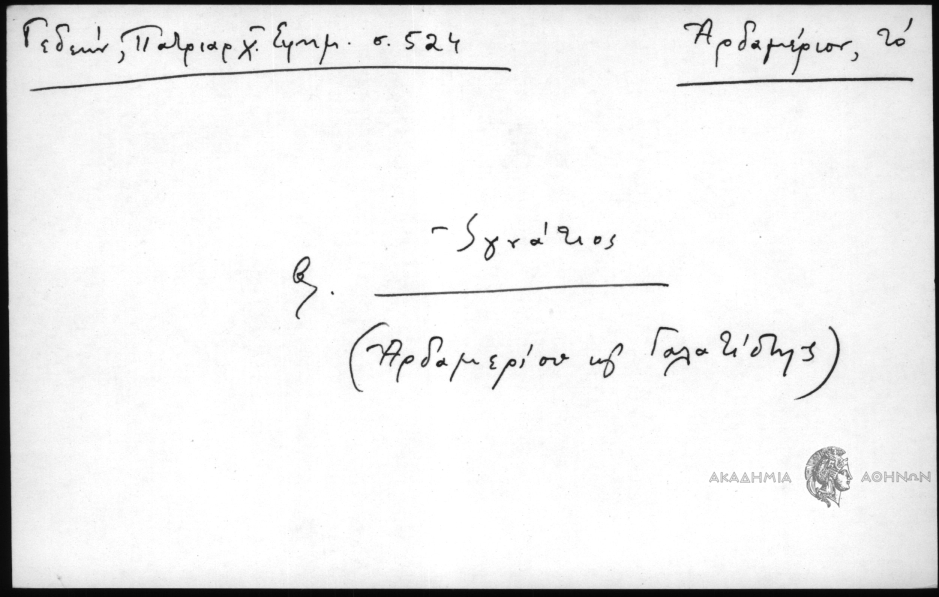 Γεδεών, Πατριαρχ. Εφημ. σ. 524
Ἀρδαμέριον, τό
Ἰγνάτιος
βλ.
(Ἀρδαμερίου καὶ Γαλατίστης)
ΑΚΑΔΗΜΙΑ ΑΘΗΝΩΝ